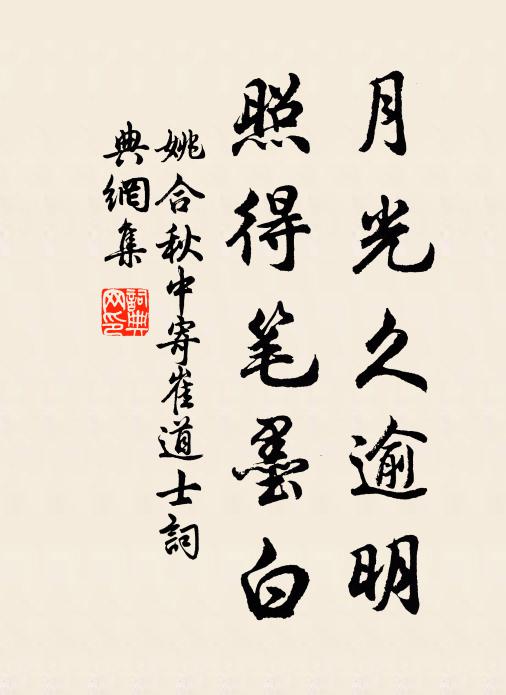 月光久逾明
照得笔墨白
姚合秋中寄崔道士詞
典網集
詞典
网印